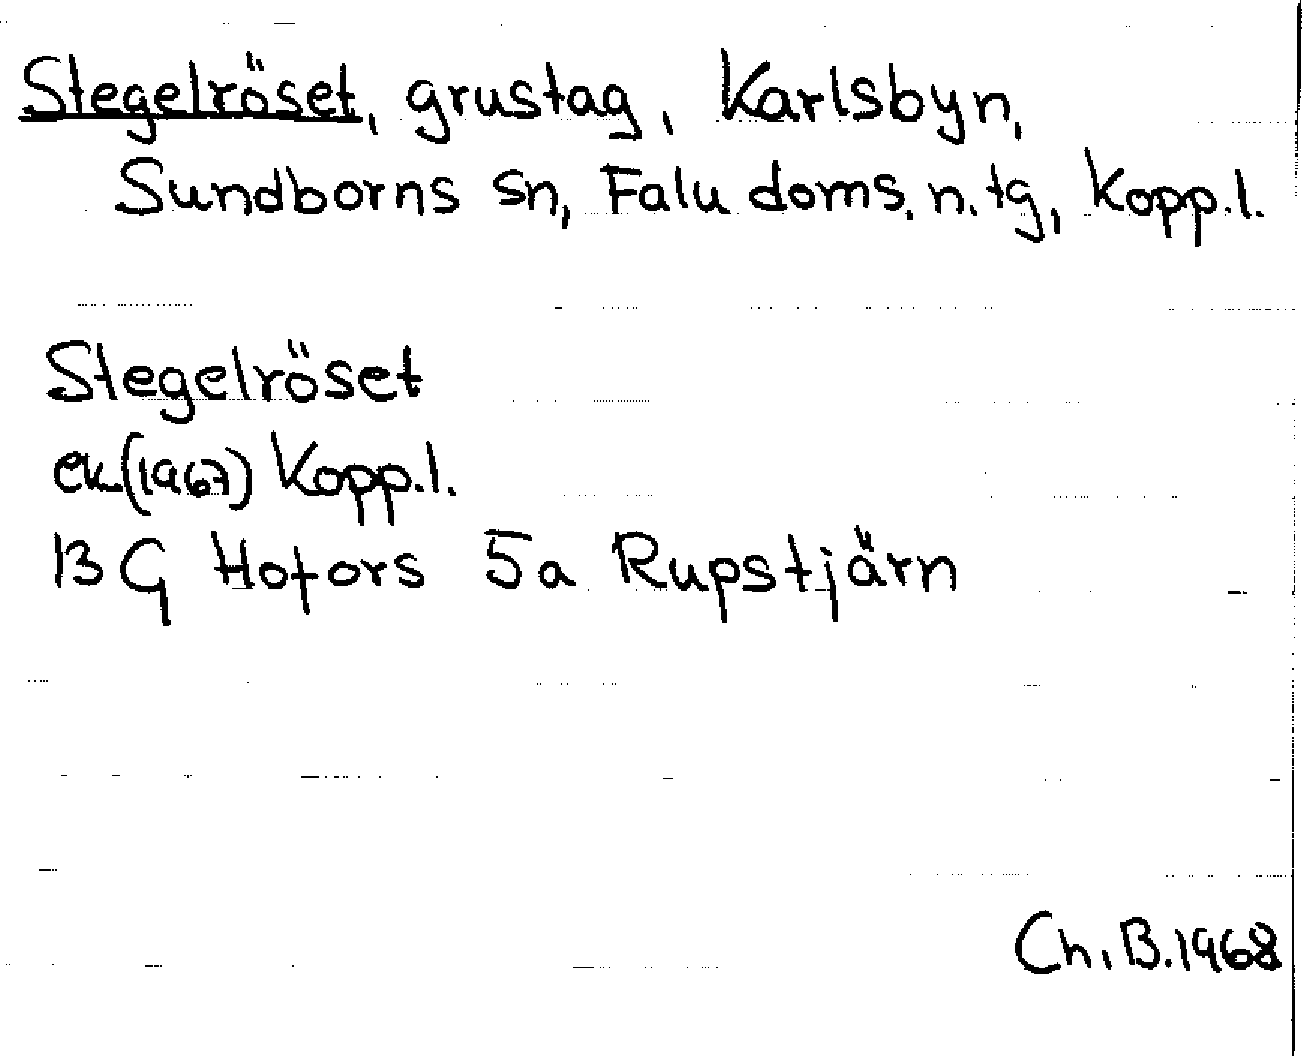 Stegelröset, grustag, Karlsbyn,
Sundborns sn, Falu doms. n. tg, Kopp.l.
Stegelröset
ek.(1967) Kopp.l.
13 G Hofors 5a Rupstjärn
Ch. B. 1968